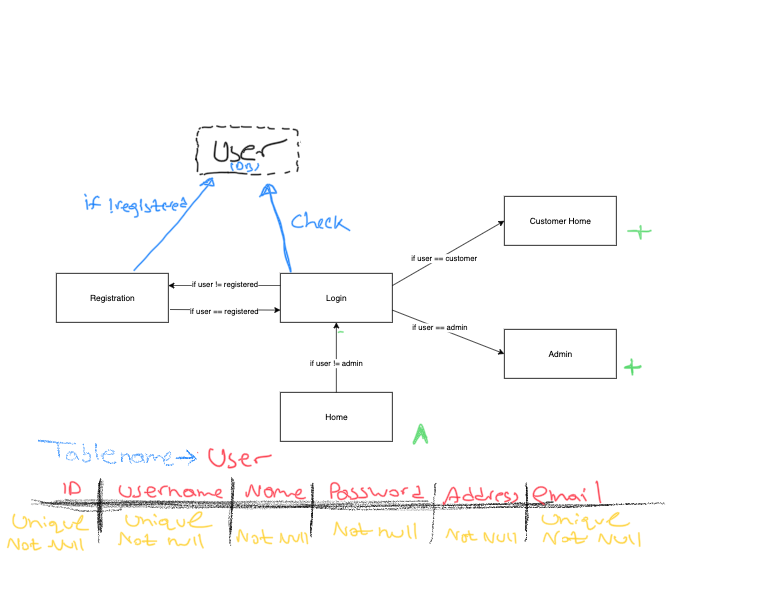 User
(DB)
if !registered
Check
Customer Home
if user == customer
if user != registered
Registration
Login
if user == registered
if user == admin
Admin
if user != admin
Home
A
Tablename → User
ID Username Name Password Address email
Unique Unique Unique
Not Null Not null Not Null Not null Not Null Not Null